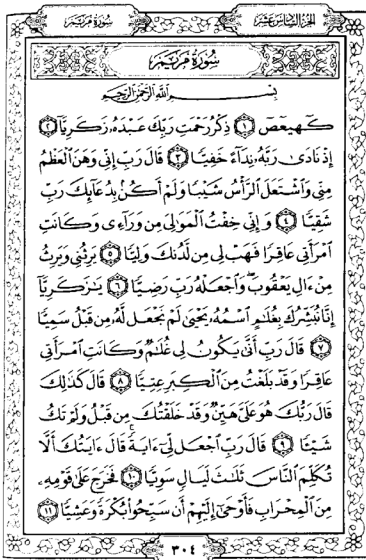 سُورَةُ مَرْيَمَ
الجُزءُ السَّادِسَ عَشَرَ
سُورَةُ مَرْيَمَ
بِسْمِ اللَّهِ الرَّحْمَٰنِ الرَّحِيمِ
كٓهيعٓصٓ ۝١ ذِكْرُ رَحْمَتِ رَبِّكَ عَبْدَهُۥ زَكَرِيَّآ ۝٢
إِذْ نَادَىٰ رَبَّهُۥ نِدَآءً خَفِيًّا ۝٣ قَالَ رَبِّ إِنِّى وَهَنَ ٱلْعَظْمُ
مِنِّى وَٱشْتَعَلَ ٱلرَّأْسُ شَيْبًا وَلَمْ أَكُنۢ بِدُعَآئِكَ رَبِّ
شَقِيًّا ۝٤ وَإِنِّى خِفْتُ ٱلْمَوَٰلِىَ مِن وَرَآءِى وَكَانَتِ
ٱمْرَأَتِى عَاقِرًا فَهَبْ لِى مِن لَّدُنكَ وَلِيًّا ۝٥ يَرِثُنِى وَيَرِثُ
مِنْ ءَالِ يَعْقُوبَ ۖ وَٱجْعَلْهُ رَبِّ رَضِيًّا ۝٦ يَٰزَكَرِيَّآ
إِنَّا نُبَشِّرُكَ بِغُلَٰمٍ ٱسْمُهُۥ يَحْيَىٰ لَمْ نَجْعَل لَّهُۥ مِن قَبْلُ سَمِيًّا
۝٧ قَالَ رَبِّ أَنَّىٰ يَكُونُ لِى غُلَٰمٌ وَكَانَتِ ٱمْرَأَتِى
عَاقِرًا وَقَدْ بَلَغْتُ مِنَ ٱلْكِبَرِ عِتِيًّا ۝٨ قَالَ كَذَٰلِكَ
قَالَ رَبُّكَ هُوَ عَلَىَّ هَيِّنٌ وَقَدْ خَلَقْتُكَ مِن قَبْلُ وَلَمْ تَكُ
شَيْـًٔا ۝٩ قَالَ رَبِّ ٱجْعَل لِّىٓ ءَايَةً ۚ قَالَ ءَايَتُكَ أَلَّا
تُكَلِّمَ ٱلنَّاسَ ثَلَٰثَ لَيَالٍ سَوِيًّا ۝١٠ فَخَرَجَ عَلَىٰ قَوْمِهِۦ
مِنَ ٱلْمِحْرَابِ فَأَوْحَىٰٓ إِلَيْهِمْ أَن سَبِّحُوا۟ بُكْرَةً وَعَشِيًّا ۝١١
٣٠٤